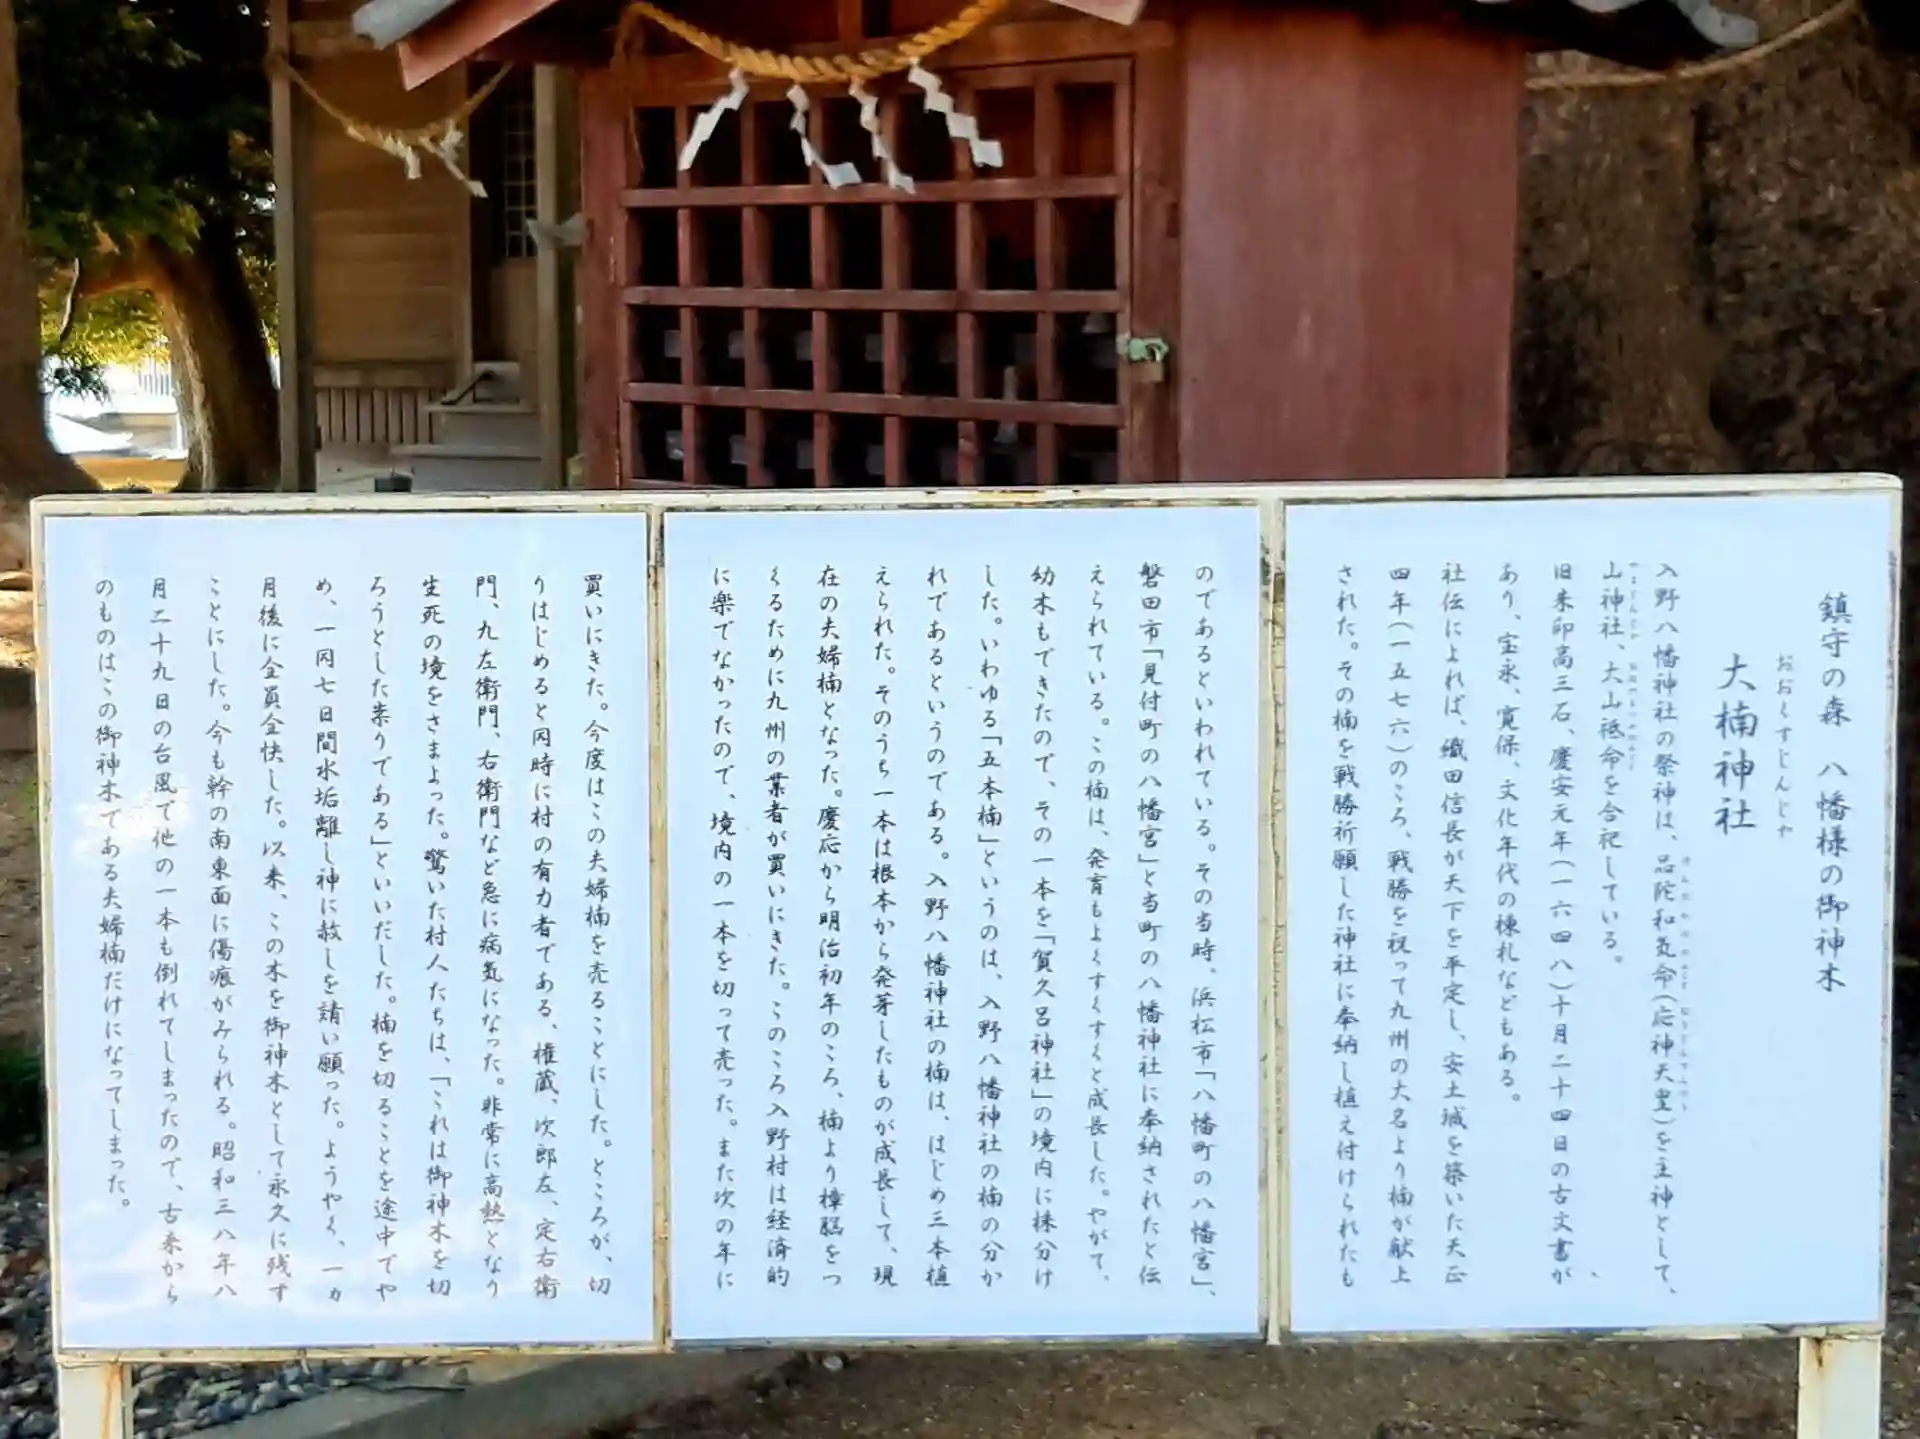 鎮守の森　八幡様の御神木
おおくすじんじゃ
大楠神社
入野八幡神社の祭神は、品陀和気命(応神天皇)を主神として、
山神社、大山祗命を合祀している。
旧来印高三石、慶安元年(一六四八)十月二十四日の古文書が
あり、宝永、寛保、文化年代の棟札などもある。
社伝によれば、織田信長が天下を平定し、安土城を築いた天正
四年(一五七六)のころ、戦勝を祝って九州の大名より楠が献上
された。その楠を戦勝祈願した神社に奉納し植え付けられたも
のであるといわれている。その当時、浜松市「八幡町の八幡宮」、
磐田市「見付町の八幡宮」と当町の八幡神社に奉納されたと伝
えられている。この楠は、発育もよくすくすくと成長した。やがて、
幼木もできたので、その一本を「賀久呂神社」の境内に株分け
した。いわゆる「五本楠」というのは、入野八幡神社の楠の分か
れであるというのである。入野八幡神社の楠は、はじめ三本植
えられた。そのうち一本は根本から発芽したものが成長して、現
在の夫婦楠となった。慶応から明治初年のころ、楠より樟脳をつ
くるために九州の業者が買いにきた。このころ入野村は経済的
に楽でなかったので、境内の一本を切って売った。また次の年に
買いにきた。今度はこの夫婦楠を売ることにした。ところが、切
りはじめると同時に村の有力者である、権蔵、次郎左、定右衛
門、九左衛門、右衛門など急に病気になった。非常に高熱となり
生死の境をさまよった。驚いた村人たちは、「これは御神木を切
ろうとした祟りである」といいだした。楠を切ることを途中でや
め、一同七日間水垢離し神に赦しを請い願った。ようやく、一カ
月後に全員全快した。以来、この木を御神木として永久に残す
ことにした。今も幹の南東面に傷痕がみられる。昭和三八年八
月二十九日の台風で他の一本も倒れてしまったので、古来から
のものはこの御神木である夫婦楠だけになってしまった。